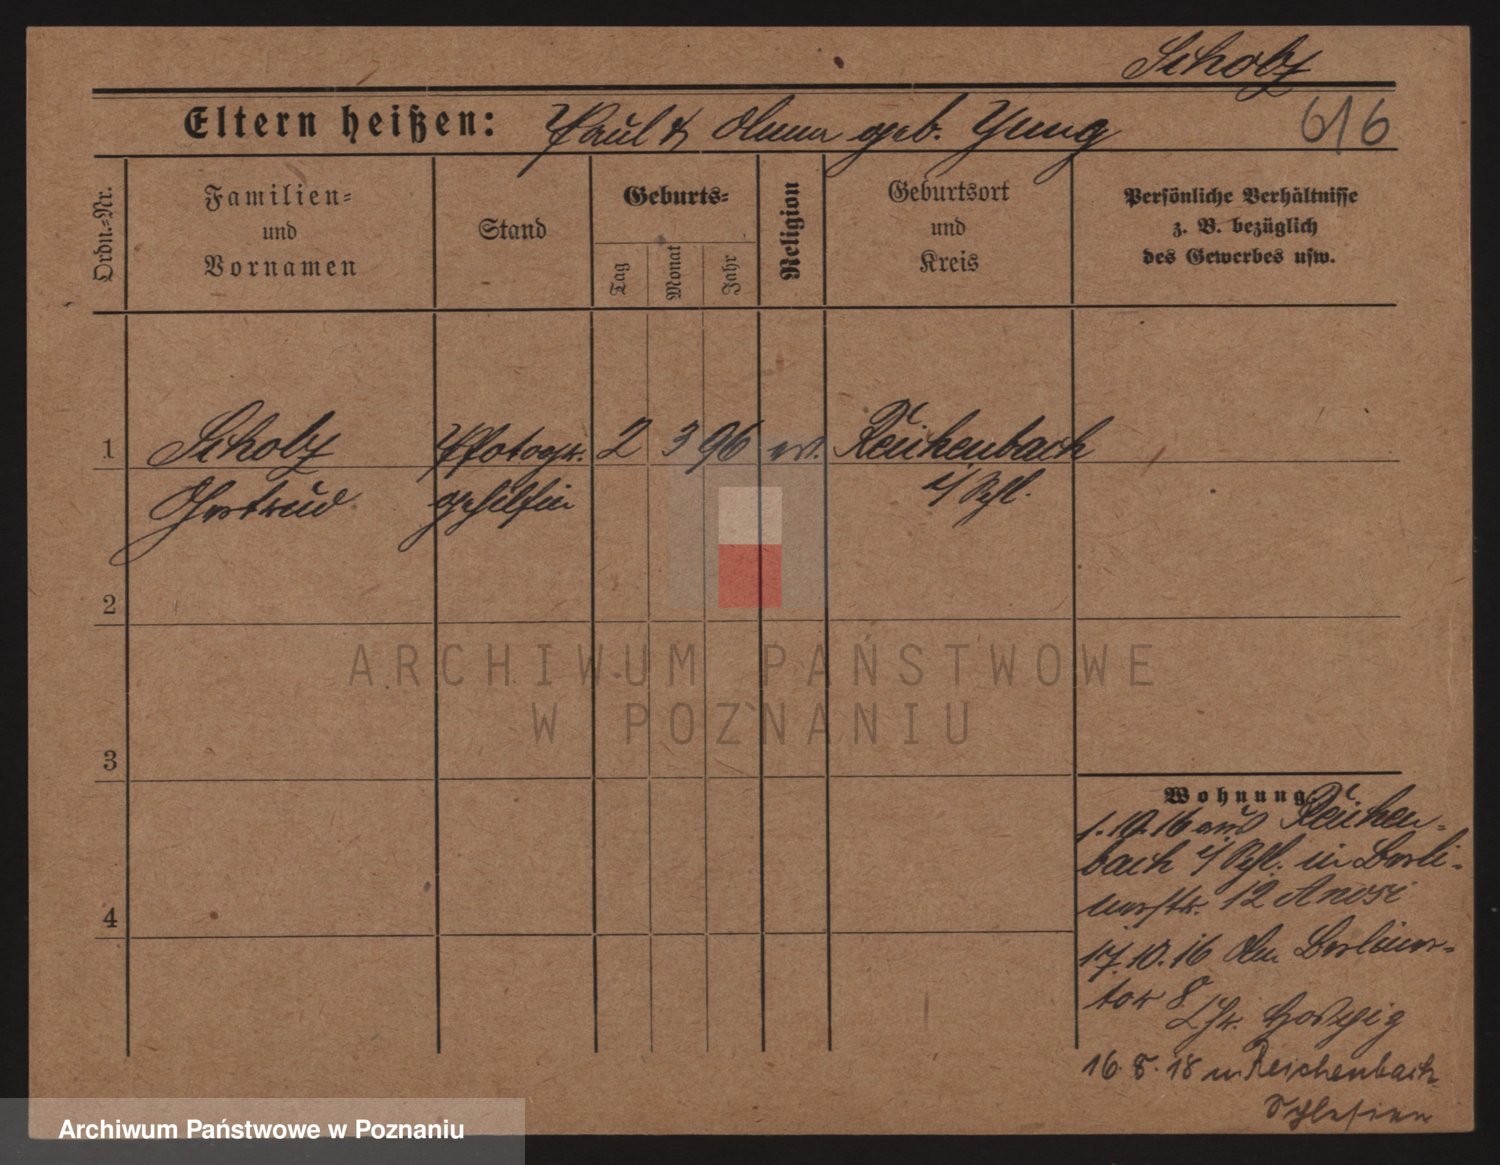 Scholz
616
Eltern heißen: Paul & Anna geb. Jung
Ordn.-Nr.
Familien-
und
Vornamen
Stand
Geburts-
Tag
Monat
Jahr
Religion
Geburtsort
und
Kreis
Persönliche Verhältnisse
z. B. bezüglich
des Gewerbes usw.
1 Scholz Photogr. 2 3 96 ev. Reichenbach
Gertrud gehilfin i/ Schl.
2
3
4
Wohnung:
1.10.16 aus Reichen-
bach i/ Schl. in Berli-
nerstr. 12
17.10.16 Am Berliner-
tor 8
16.8.18 n Reichenbach
Schlesien
ARCHIWUM PAŃSTWOWE
W POZNANIU
Archiwum Państwowe w Poznaniu